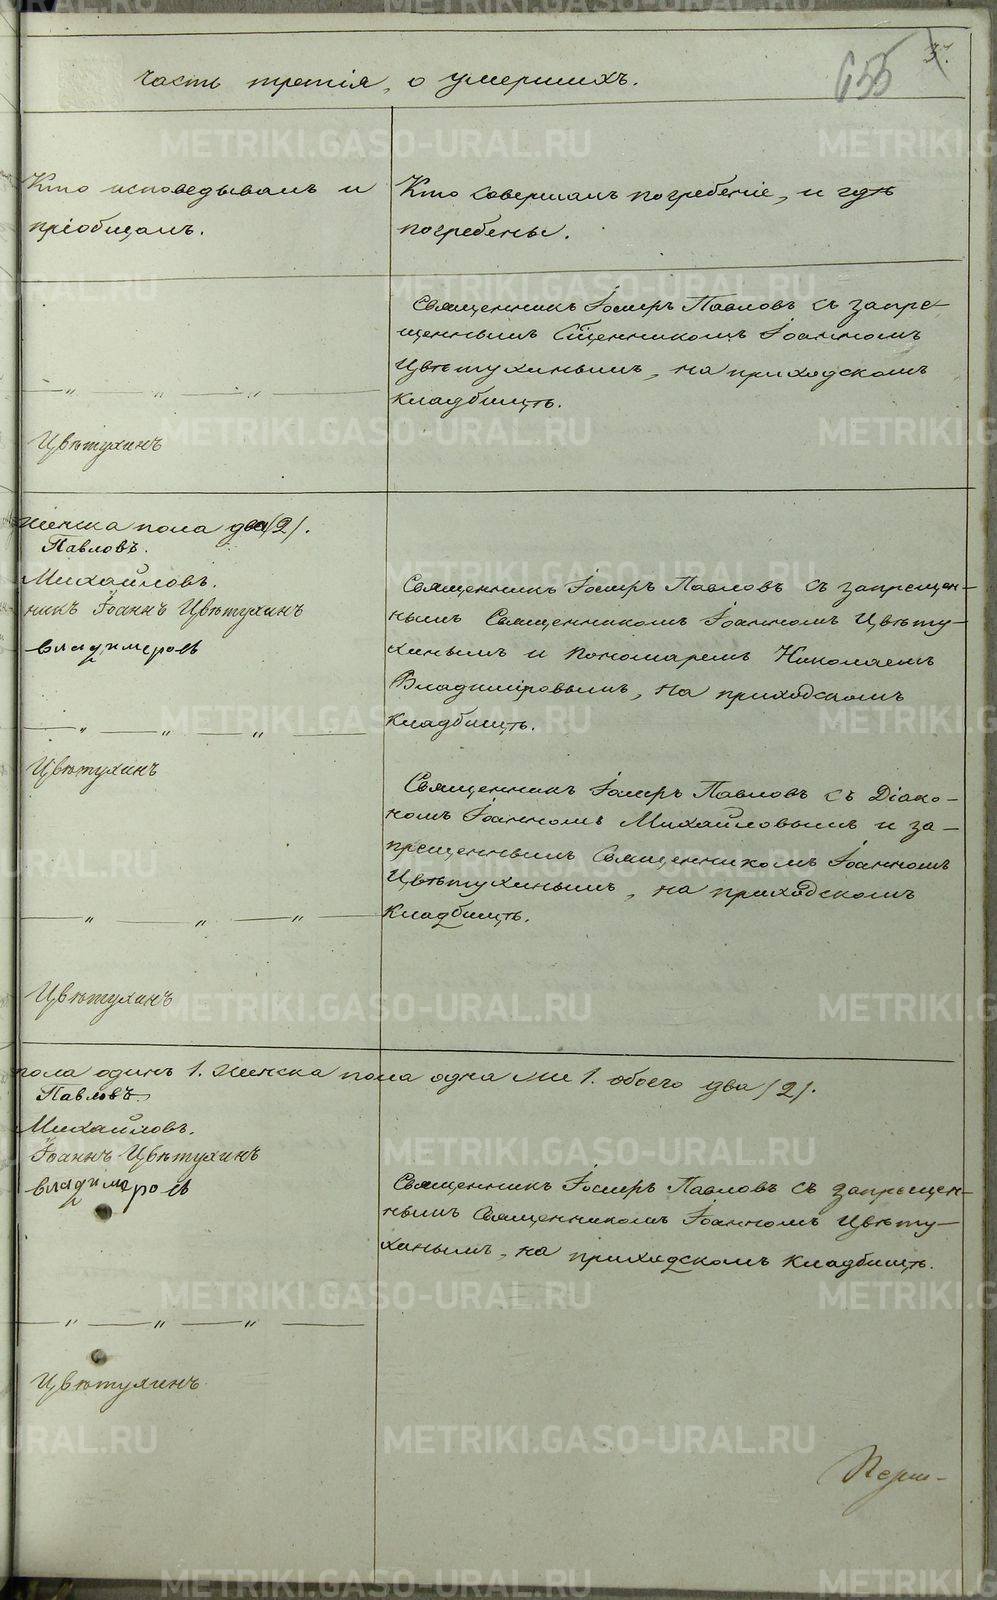 Часть третія, о умершихъ.
655
37.
Кто исповедывалъ и
пріобщалъ.
Кто совершалъ погребеніе, и гдѣ
погребены.
Священникъ Іосифъ Павловъ съ запре-
щеннымъ Сщенникомъ Іоанномъ
Цвѣтухинымъ, на приходскомъ
кладбищѣ.
Цвѣтухинъ
женска пола два /2/.
Павловъ.
Михайловъ.
никъ Іоаннъ Цвѣтухинъ
владимеровъ
Священникъ Іосифъ Павловъ съ запрещен-
нымъ Священникомъ Іоанномъ Цвѣту-
хинымъ и пономаремъ Николаемъ
Владиміровымъ, на приходскомъ
кладбищѣ.
Цвѣтухинъ
Священникъ Іосифъ Павловъ съ Діако-
номъ Іоанномъ Михайловымъ и за-
прещеннымъ Священникомъ Іоанномъ
Цвѣтухинымъ, на приходскомъ
кладбищѣ.
Цвѣтухинъ
пола одинъ 1. женска пола одна 1. обоего два /2/.
Павловъ
Михайловъ.
Іоаннъ Цвѣтухинъ
владимеровъ
Священникъ Іосифъ Павловъ съ запрещен-
нымъ Священникомъ Іоанномъ Цвѣту-
хинымъ, на приходскомъ кладбищѣ.
Цвѣтухинъ
METRIKI.GASO-URAL.RU